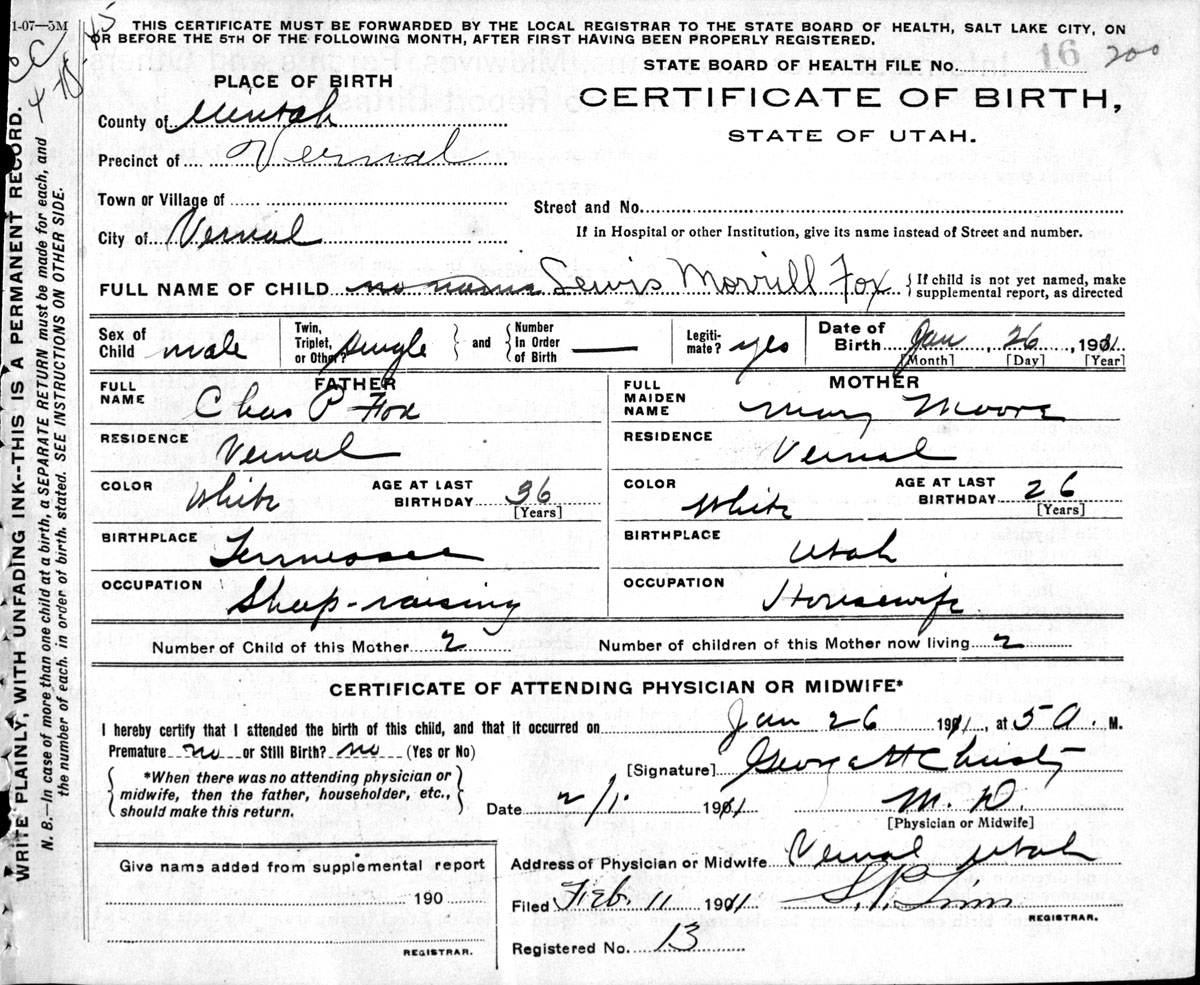 1-07—5M
THIS CERTIFICATE MUST BE FORWARDED BY THE LOCAL REGISTRAR TO THE STATE BOARD OF HEALTH, SALT LAKE CITY, ON
OR BEFORE THE 5TH OF THE FOLLOWING MONTH, AFTER FIRST HAVING BEEN PROPERLY REGISTERED.
STATE BOARD OF HEALTH FILE NO. 16 200
PLACE OF BIRTH
CERTIFICATE OF BIRTH,
STATE OF UTAH.
County of Uintah
Precinct of Vernal
Town or Village of
Street and No.
City of Vernal
If in Hospital or other Institution, give its name instead of Street and number.
FULL NAME OF CHILD no name Lewis Morrill Fox {If child is not yet named, make
supplemental report, as directed
Sex of Child male
Twin, Triplet, or Other? Single } and { Number in Order of Birth —
Legitimate? yes
Date of Birth Jan 26, 1901
[Month] [Day] [Year]
FATHER
FULL NAME Chas P Fox
RESIDENCE Vernal
COLOR White
AGE AT LAST BIRTHDAY 36
[Years]
BIRTHPLACE Tennessee
OCCUPATION Sheep-raising
MOTHER
FULL MAIDEN NAME Mary Moore
RESIDENCE Vernal
COLOR White
AGE AT LAST BIRTHDAY 26
[Years]
BIRTHPLACE Utah
OCCUPATION Housewife
Number of Child of this Mother 2
Number of children of this Mother now living 2
CERTIFICATE OF ATTENDING PHYSICIAN OR MIDWIFE*
I hereby certify that I attended the birth of this child, and that it occurred on Jan 26 1911, at 5 A. M.
Premature no or Still Birth? no (Yes or No)
{*When there was no attending physician or
midwife, then the father, householder, etc.,
should make this return.}
[Signature] George H Christy
Date 2/1. 1911
M. D.
[Physician or Midwife]
Give name added from supplemental report
190
REGISTRAR.
Address of Physician or Midwife Vernal Utah
Filed Feb. 11 1911
REGISTRAR.
Registered No. 13
WRITE PLAINLY, WITH UNFADING INK--THIS IS A PERMANENT RECORD.
N. B.—In case of more than one child at a birth, a SEPARATE RETURN must be made for each, and
the number of each. in order of birth. stated. SEE INSTRUCTIONS ON OTHER SIDE.